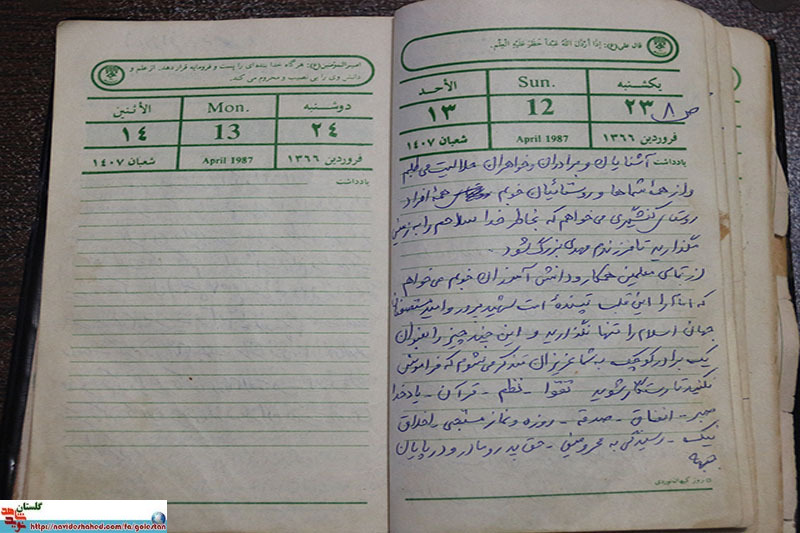 قال علی (ع): إذا أرذل اللهُ عبداً حَظَرَ عَلَیهِ العِلْم.
الأحد
Sun.
یکشنبه
۱۳
12
۲۳
ص ۸
شعبان ۱۴۰۷
April 1987
فروردین ۱۳۶۶
یادداشت
آشنایان و برادران و خواهران حلالیت می‌طلبم
و از همهٔ شماها و روستائیان خوبم همهٔ افراد
روستای می‌خواهم که بخاطر خدا سلاحم را به زمین
نگذارید تا فرزندم مهدی بزرگ شود.
از تمامی معلمین همکار و دانش آموزان خوبم می‌خواهم
که امام را این قلب تپندهٔ امت شهید پرور و امید مستضعفان
جهان اسلام را تنها نگذارید و این چند چیز را بعنوان
یک برادر کوچک به شما عزیزان متذکر می‌شوم که فراموش
نکنید تا رستگار شوید تقوا - نظم - قرآن - یاد خدا
صبر - انفاق - صدقه - روزه و نماز مستحبی - اخلاق
نیک - رسیدگی به محرومین - حق پدر و مادر و در پایان
جبهه
امیرالمؤمنین (ع): هرگاه خدا بنده‌ای را پست و فرومایه قرار دهد، از علم و
دانش وی را بی نصیب و محروم می کند.
الأثنین
Mon.
دوشنبه
۱۴
13
۲۴
شعبان ۱۴۰۷
April 1987
فروردین ۱۳۶۶
یادداشت
گلستان
نوید شاهد
https://navideshahed.com/fa/golestan